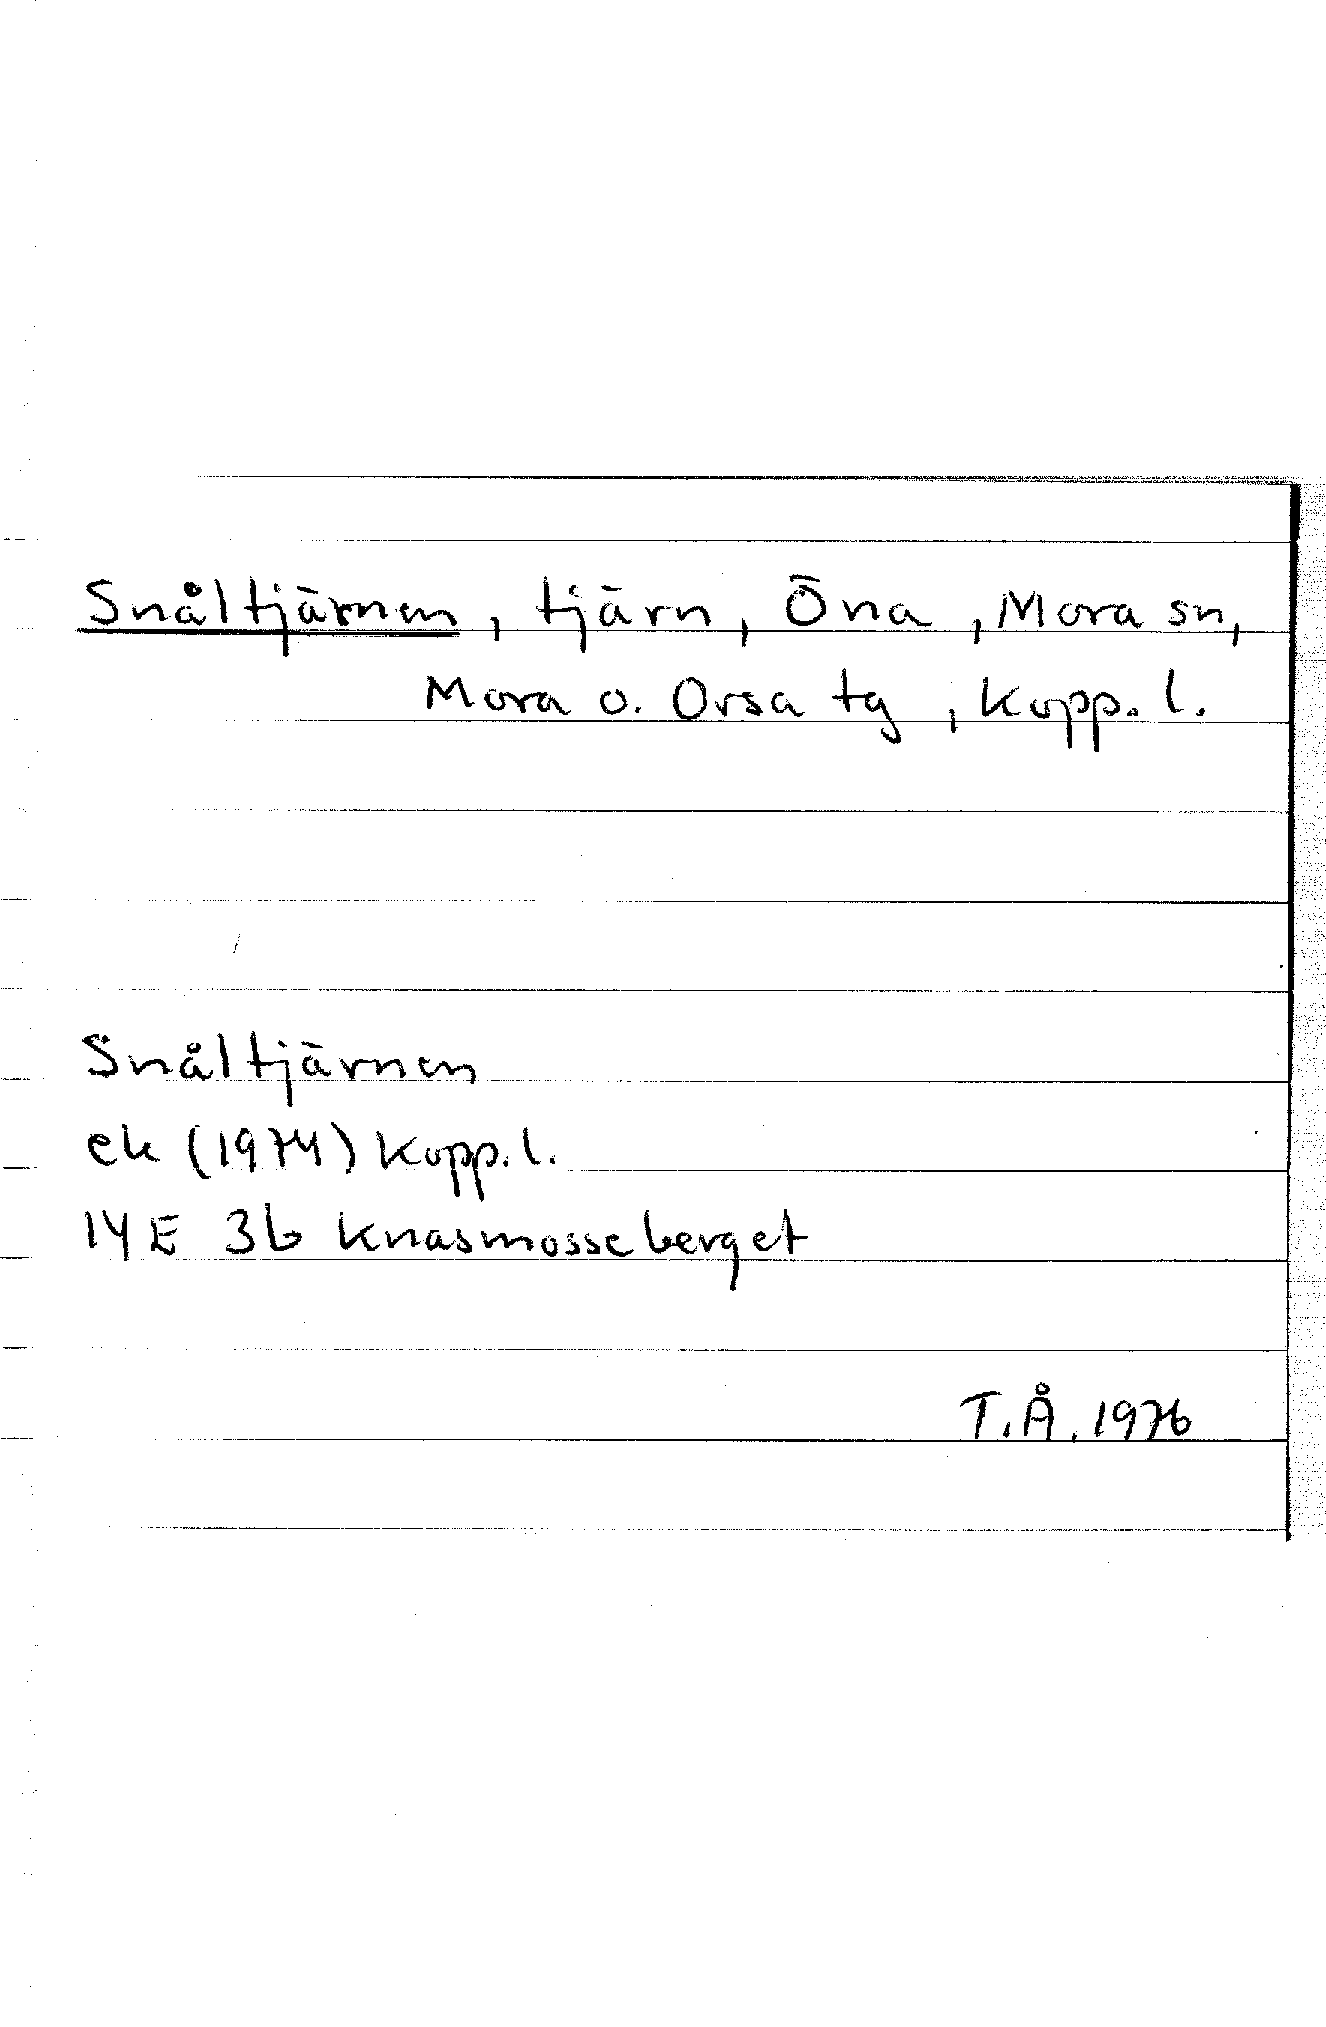 Snåltjärnen, tjärn, Öna, Mora sn,
Mora o. Orsa tg, Kopp. l.
Snåltjärnen
ek (1974) Kopp. l.
14 E 3b Knasmosseberget
T.Å. 1976